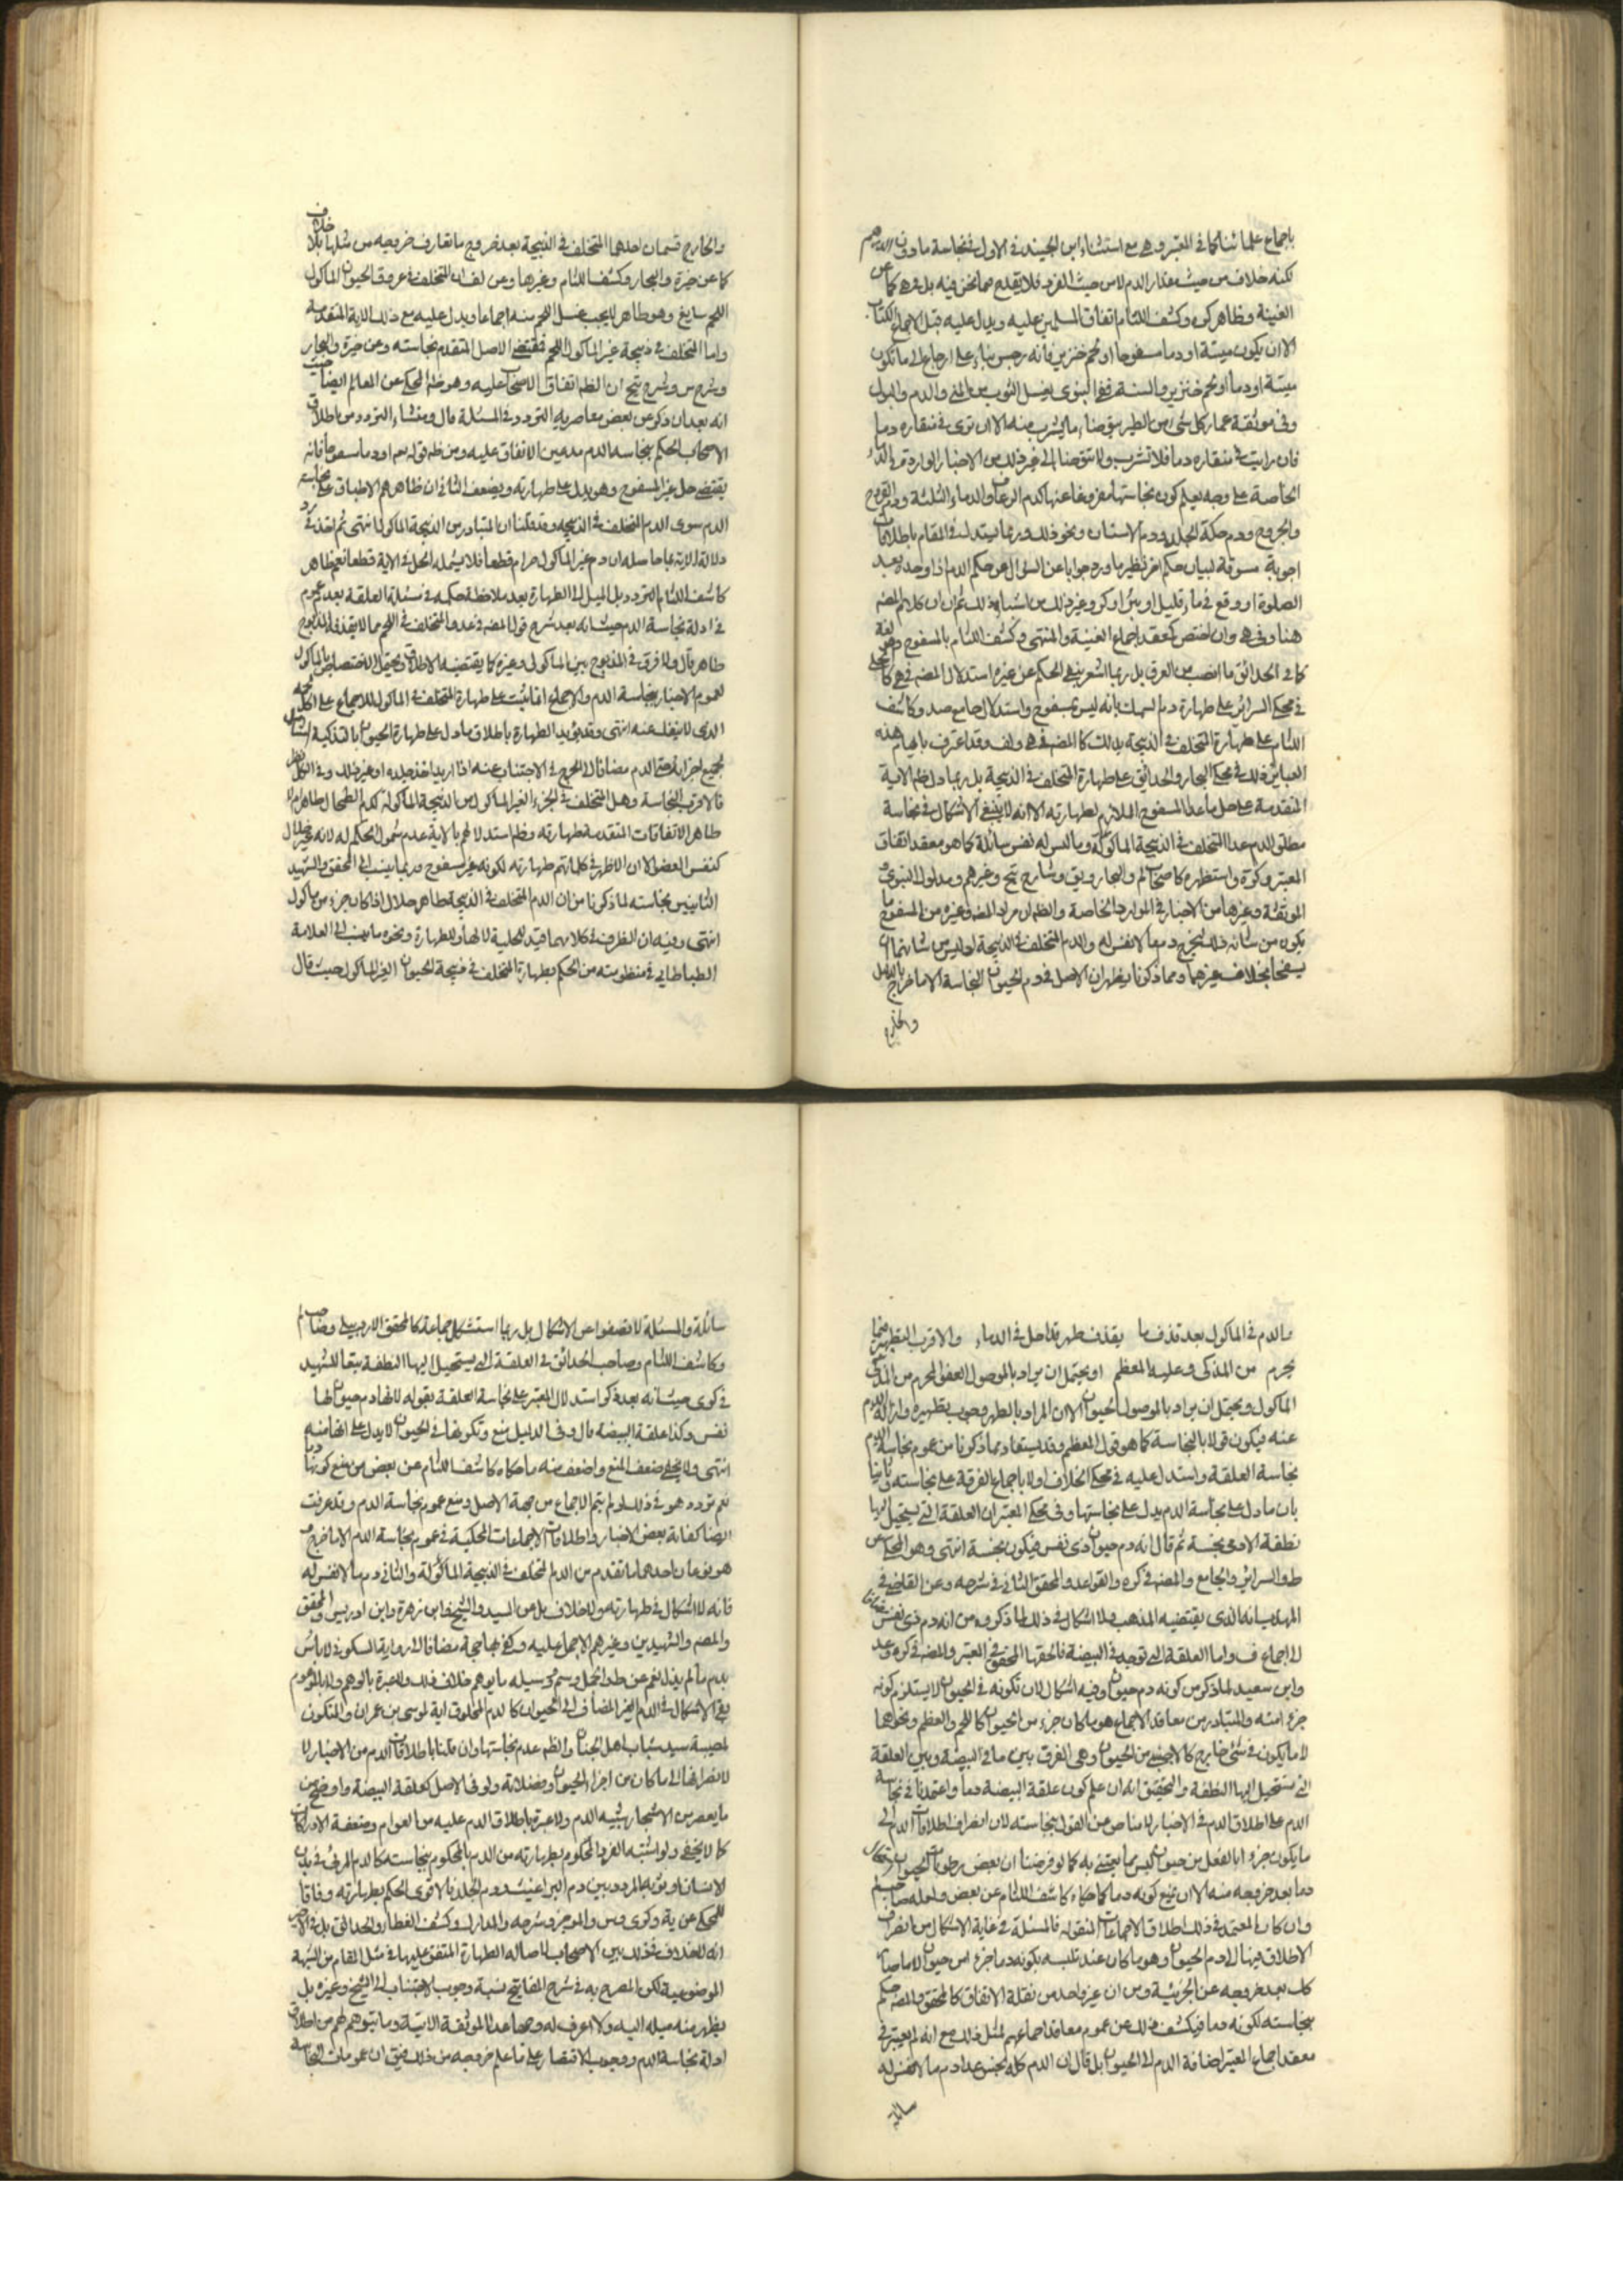 باجماع علمائنا كما في المعتبر وهي مع استثناء ابن الجنيد في الاول نجاسة ما دون الدرهم
لكنه خلاف من حيث مقدار الدم لا من حيث الفرد فلا يقدح فيما نحن فيه بل وهي كما عن
الغنية وظاهر كرى وكشف اللثام اتفاق المسلمين عليه ويدل عليه قبل الاجماع الكتاب
الا ان يكون ميتة او دما مسفوحا او لحم خنزير فانه رجس بناء على ارجاع الى ما تكون
ميتة او دما او لحم خنزير والسنة ففي النبوى يغسل الثوب من المنى والدم والبول
وفي موثقة عمار كل شئ من الطير يتوضا مما يشرب منه الا ان ترى في منقاره دما
فان رايت في منقاره دما فلا تشرب ولا تتوضا الى غير ذلك من الاخبار الواردة في الدماء
الخاصة على وجه يعلم كون نجاستها مفروغا عنها كدم الرعاف والدماء الثلثة ودم القروح
والجروح ودم حكة الجلد ودم الاسنان ونحو ذلك وربما يستدل في المقام باطلاقات
اجوبة مسوقة لبيان حكم اخر نظير ما ورد جوابا عن السؤال عن حكم الدم اذا وجده بعد
الصلوة او وقع في ماء قليل او بئر او كر وغير ذلك من اشباه ذلك ثم ان كلام المصنف
هنا وفي هى وان اختص كمعقد اجماع الغنية والمنتهى وكشف اللثام بالمسفوح وهو لغة
كما في الحدائق ما انصب من العرق بل ربما اشعر بنفى الحكم عن غيره استدلال المصنف في هى كما
في محكى السرائر على طهارة دم السمك بانه ليس بمسفوح واستدلال جامع صد وكاشف
اللثام على طهارة المتخلف في الذبيحة بذلك كالمصنف في هى ولف وقد اعترف بايهام هذه
العبائر ذلك في محكى البحار والحدائق على طهارة المتخلف في الذبيحة بل ربما دل ظاهر الاية
المتقدمة على حل ما عدا المسفوح الملازم لطهارته الا انه لا ينبغي الاشكال في نجاسة
مطلق الدم عدا المتخلف في الذبيحة الماكولة وما ليس له نفس سائلة كما هو معقد اتفاق
المعتبر وكرة واستظهره كاصحاب لم والبحار وبق وشارح يح وغيرهم ومدلول النبوى
الموثقة وغيرها من الاخبار في الموارد الخاصة والظاهر ان مراد المصنف وغيره من المسفوح ما
يكون من شانه ذلك ليخرج دم ما لا نفس له والدم المتخلف في الذبيحة اذ ليس من شانهما ان
يسفحا بخلاف غيرهما ومما ذكرنا يظهر ان الاصل في دم الحيوان النجاسة الا ما خرج بالدليل
والخارج
والخارج قسمان احدهما المتخلف في الذبيحة بعد خروج ما تعارف خروجه من مثلها بلا خلاف
كما عن خيرة والبحار وكشف اللثام وغيرها وعن لف ان المتخلف في عروق الحيوان الماكول
اللحم سايغ وهو طاهر لا يجب غسل اللحم منه اجماعا ويدل عليه مع ذلك الاية المتقدمة
واما المتخلف في ذبيحة غير الماكول اللحم فمقتضى الاصل المتقدم نجاسته وعن خيرة والبحار
وشرح س وشرح يح ان الظاهر اتفاق الاصحاب عليه وهو ظاهر المحكى عن المعالم ايضا حيث
انه بعد ان ذكر عن بعض معاصريه التردد في المسئلة قال ومنشاء التردد من اطلاق
الاصحاب الحكم بنجاسة الدم مدعين الاتفاق عليه ومن ظاهر قوله تعم او دما مسفوحا فانه
يقتضى حل غير المسفوح وهو يدل على طهارته ويضعف الثانى ان ظاهرهم الاطباق على نجاسة
الدم سوى الدم المتخلف في الذبيحة وقد قلنا ان المتبادر من الذبيحة الماكول انتهى ثم اخذ في رد
دلالة الاية بما حاصله ان دم غير الماكول حرام قطعا فلا يشمله الحل في الاية قطعا نعم ظاهر
كاشف اللثام التردد بل الميل الى الطهارة بعد ملاحظة حكمه في مسئلة العلقة بعدم عموم
في ادلة نجاسة الدم حيث انه بعد شرح قول المصنف في عد المتخلف في اللحم مما لا يقذفه المذبوح
طاهر قال ولا فرق في المذبوح بين الماكول وغيره كما يقتضيه الاطلاق ويحتمل الاختصاص بالماكول
لعموم الاخبار بنجاسة الدم والاجماع انما يثبت على طهارة المتخلف في الماكول للاجماع على اكل لحمه
الذى لا ينفك عنه انتهى وقد يؤيد الطهارة باطلاق ما دل على طهارة الحيوان بالتذكية الشامل
لجميع اجزائه حتى الدم مضافا الى الحرج في الاجتناب عنه اذا اريد اخذ جلده او غير ذلك وفي الكل نظر
فالاقرب النجاسة وهل المتخلف في الجزء الغير الماكول من الذبيحة الماكولة كدم الطحال طاهر ام لا
ظاهر الاتفاقات المتقدمة طهارته وظاهر استدلالهم بالاية عدم شمول الحكم له لانه غير حلال
كنفس العضو الا ان الاظهر في كلماتهم طهارته لكونه غير مسفوح وربما ينسب الى المحقق والشهيد
الثانيين نجاسته لما ذكرنا من ان الدم المتخلف في الذبيحة طاهر حلال اذا كان جزء من ماكول
انتهى وفيه ان الظرف في كلامهما قيد للحلية لا لها وللطهارة ونحوه ما ينسب الى العلامة
الطباطبائى في منظومته من الحكم بطهارة المتخلف في ذبيحة الحيوان الغير الماكول حيث قال
والدم في الماكول بعد قذف ما يقذف طهر قد احل في الدماء والاقرب التطهير فيما
يحرم من المذكى وعليه المعظم او يحتمل ان يراد بالموصول العضو المحرم من المذكى
الماكول ويحتمل ان يراد بالموصول الحيوان الا ان المراد بالطهر وجوب تطهيره وازالة الدم
عنه فيكون قولا بالنجاسة كما هو قول المعظم وقد يستفاد مما ذكرنا من عموم نجاسة الدم
نجاسة العلقة واستدل عليه في محكى الخلاف اولا باجماع الفرقة على نجاسته وثانيا
بان ما دل على نجاسة الدم يدل على نجاستها وفي محكى المعتبر ان العلقة التى يستحيل اليها
نطفة الادمى نجسة ثم قال انه دم حيوان ذى نفس فيكون نجسة انتهى وهو المحكى عن
ط والسرائر والجامع والمصنف في كره والقواعد والمحقق الثانى في شرحه وعن القاضى في
المهذب انه الذى يقتضيه المذهب ولا اشكال في ذلك لما ذكروه من انه دم ذى نفس مضافا
الى اجماع ف واما العلقة التى توجد في البيضة فالحقها المحقق في المعتبر والمصنف في كره وعد
وابن سعيد لما ذكر من كونه دم حيوان وفيه اشكال لان تكونه في الحيوان لا يستلزم كونه
جزء منه والمتبادر من معاقد الاجماع هو ما كان جزء من الحيوان كاللحم والعظم ونحوهما
لا ما يكون في شئ خارج كالاجنبى من الحيوان وهى الفرق بين ما في البيضة وبين العلقة
التى تستحيل اليها النطفة والتحقيق انه ان علم كون علقة البيضة دما واعتمدنا في نجاسة
الدم على اطلاق الدم في الاخبار لا مناص من القول بنجاسته لان انصراف اطلاقات الدم الى
ما يكون جزء بالفعل من حيوان ليس مما يعتنى به كما لو فرضنا ان بعض رطوبات الحيوان
دما بعد خروجه منه الا ان يمنع كونه دما كما حكاه كاشف اللثام عن بعض ولعله صاحب لم
وان كان المعتمد في ذلك اطلاق الاجماعات المنقوله فالمسئلة في غاية الاشكال من انصراف
الاطلاق فيها الى دم الحيوان وهو ما كان عند تلبسه بكونه دما جزء من حيوان لا ما صار
كك بعد خروجه عن الجزئية ومن ان غير واحد من نقلة الاتفاق كالمحقق والمصنف حكم
بنجاسته لكونه دما فيكشف ذلك عن عموم معاقد اجماعهم لمثل ذلك مع انه لم يعتبر في
معقد اجماع المعتبر اضافة الدم الى الحيوان بل قال ان الدم كله نجس عدا دم ما لا نفس له
سائلة
سائلة والمسئلة لا تصفوا عن الاشكال بل ربما استشكل جماعة كالمحقق الاردبيلى وصاحب لم
وكاشف اللثام وصاحب الحدائق في العلقة التى يستحيل اليها النطفة تبعا للشهيد
في كرى حيث انه بعد ذكر استدلال المعتبر على نجاسة العلقة بقوله لانها دم حيوان لها
نفس وكذا علقة البيضة قال وفي الدليل منع وتكونها في الحيوان لا يدل على انها منه
انتهى ولا يخفى ضعف المنع واضعف منه ما حكاه كاشف اللثام عن بعض من منع كونها دما
نعم تردد هو في ذلك لو لم يتم الاجماع من جهة الاصل ومنع عموم نجاسة الدم وقد عرفت
ايضا كفاية بعض الاخبار واطلاقات الاجماعات المحكية في عموم نجاسة الدم الا ما خرج و
هو نوعان احدهما ما تقدم من الدم المتخلف في الذبيحة الماكولة والثانى دم ما لا نفس له
فانه لا اشكال في طهارته ولا خلاف بل عن السيد والشيخ وابن زهرة وابن ادريس والمحقق
والمصنف والشهيدين وغيرهم الاجماع عليه وكفى بها حجة مضافا الى رواية السكونى لا باس
بدم ما لم يذك نعم عن ط والجمل وسم ومر سيله ما يوهم خلاف ذلك والعبرة بالوهم ولا بالموهوم
بقى الاشكال في الدم الغير المضاف الى الحيوان كالدم المخلوق اية لموسى بن عمران والمتكون
لمصيبة سيد شباب اهل الجنة والظاهر عدم نجاستها وان قلنا باطلاقات الدم من الاخبار
لانصرافها الى ما كان من اجزاء الحيوان وفضلاته ولو في الاصل كعلقة البيضة واوضح من
ما يعصر من الاشجار شبيه الدم ولا عبرة باطلاق الدم عليه من العوام وضعفة الادراك
كما لا يخفى ولو اشتبه الفرد المحكوم بطهارته من الدم بالمحكوم بنجاسته كالدم المرئى في بدن
الانسان او ثوبه المردد بين دم البراغيث ودم الجلد فالاقوى الحكم بطهارته وفاقا
للمحكى عن ية وكرى وس والموجز وشرحه والمدارك وكشف الغطاء والحدائق بل في الاخير
انه لا خلاف في ذلك بين الاصحاب لاصالة الطهارة المتفق عليها في مثل المقام من الشبهة
الموضوعية لكن المصرح به في شرح المفاتيح نسبة وجوب الاجتناب الى الشيخ وغيره بل
يظهر منه ميله اليه ولا اعرف له وجها عدا الموثقة الاتية وما يتوهم لهم من اطلاق
ادلة نجاسة الدم ووجوب الاقتصار على ما علم خروجه من ذلك وفيه ان عمومات النجاسة